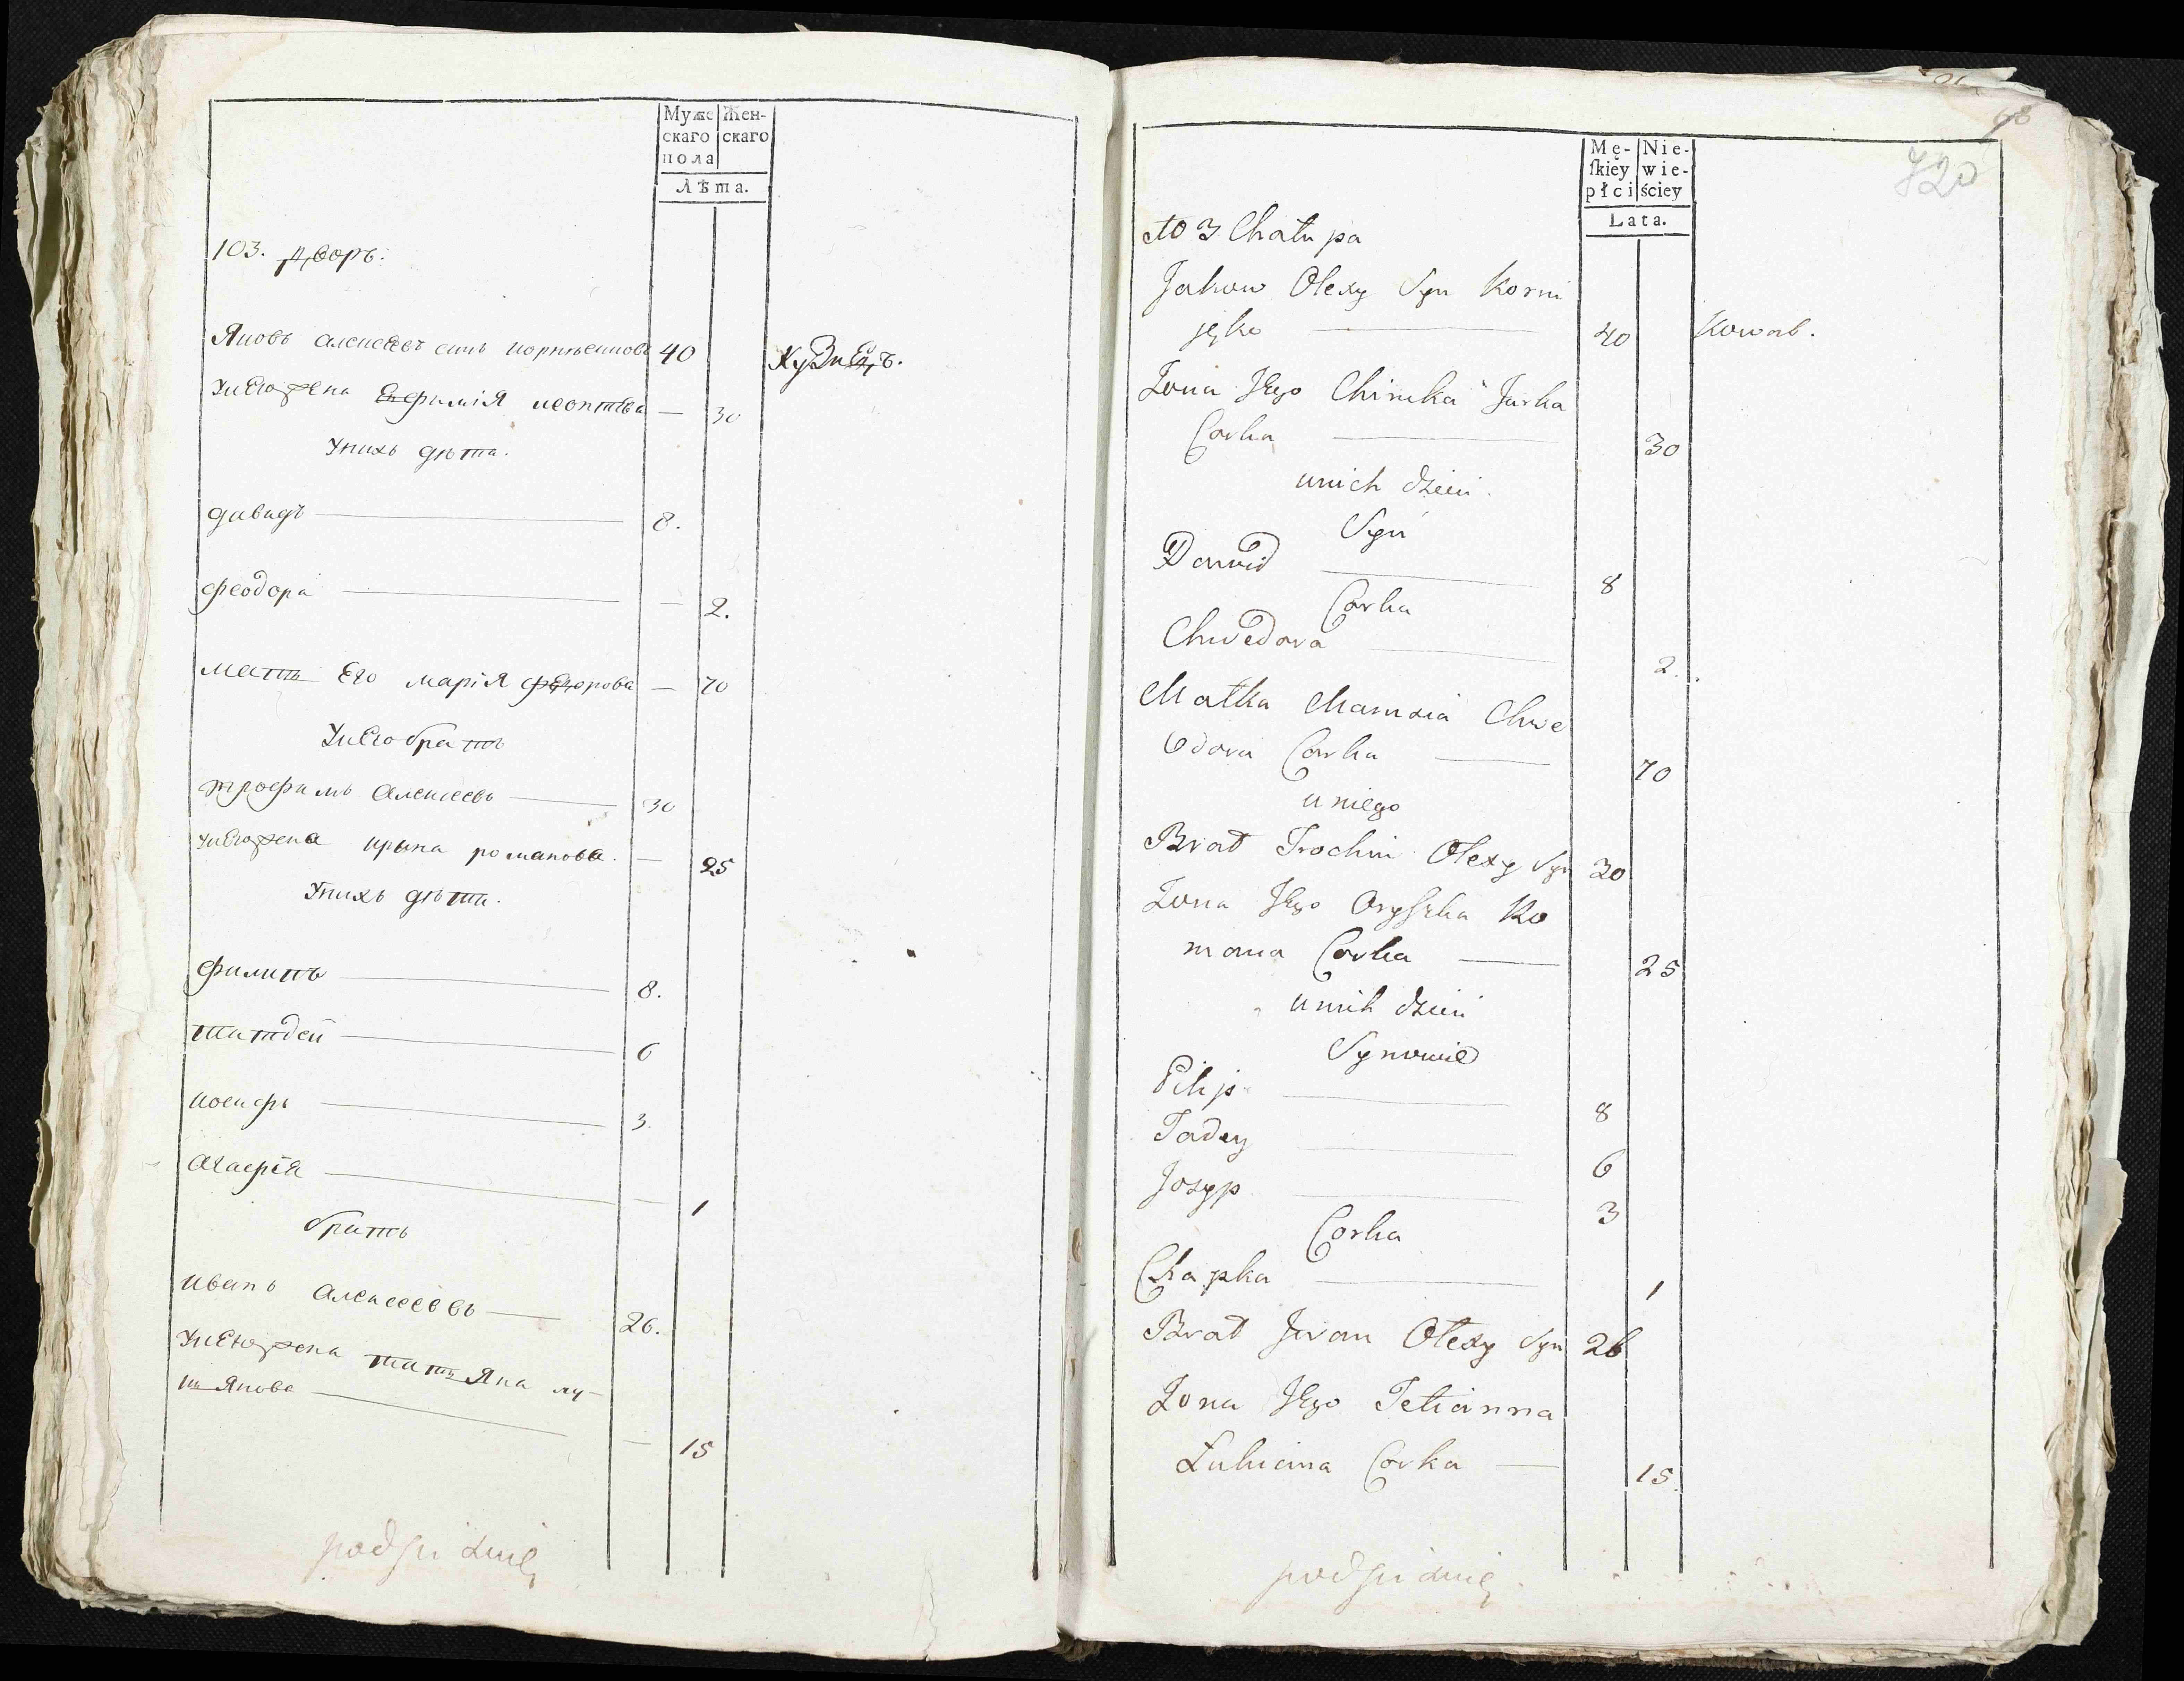 Муже
скаго
пола
Жен-
скаго
Лѣта.
103. дворъ.
Яковъ алексеевъ синъ корнѣенковъ 40 кузнецъ.
унегожена Ефимія леонтева — 30
унихъ дѣти.
давидъ 8.
феодора — 2.
мать его марія федорова — 70
унего братъ
трофимъ алексеевъ 30
унегожена ирина романова. — 25
унихъ дѣти.
филипъ 8.
татдей 6
иосифъ 3.
агафія — 1
братъ
иванъ алексеевъ 26.
унегожена татьяна лу-
кьянова — 15
68
720
Mę-
ſkiey
płci
Nie-
wie-
ściey
Lata.
103 Chałupa
Jakow Olexy Syn Korni
jęko 40 Kowal.
Żona Jego Chimka Jurka
Corka 30
unich dzieci.
Syn
Dawid 8
Corka
Chwedora 2.
Matka Maruzia Chwe
dora Corka 70
uniego
Brat Trochim Olexy Syn 30
Żona Jego Oryſzka Ro
mana Corka 25
unich dzieci
Synowie
Pilip 8
Tadey 6
Jozyp 3
Corka
Chapka 1
Brat Jwan Olexy Syn 26
Żona Jego Tetianna
Łukiana Corka 15